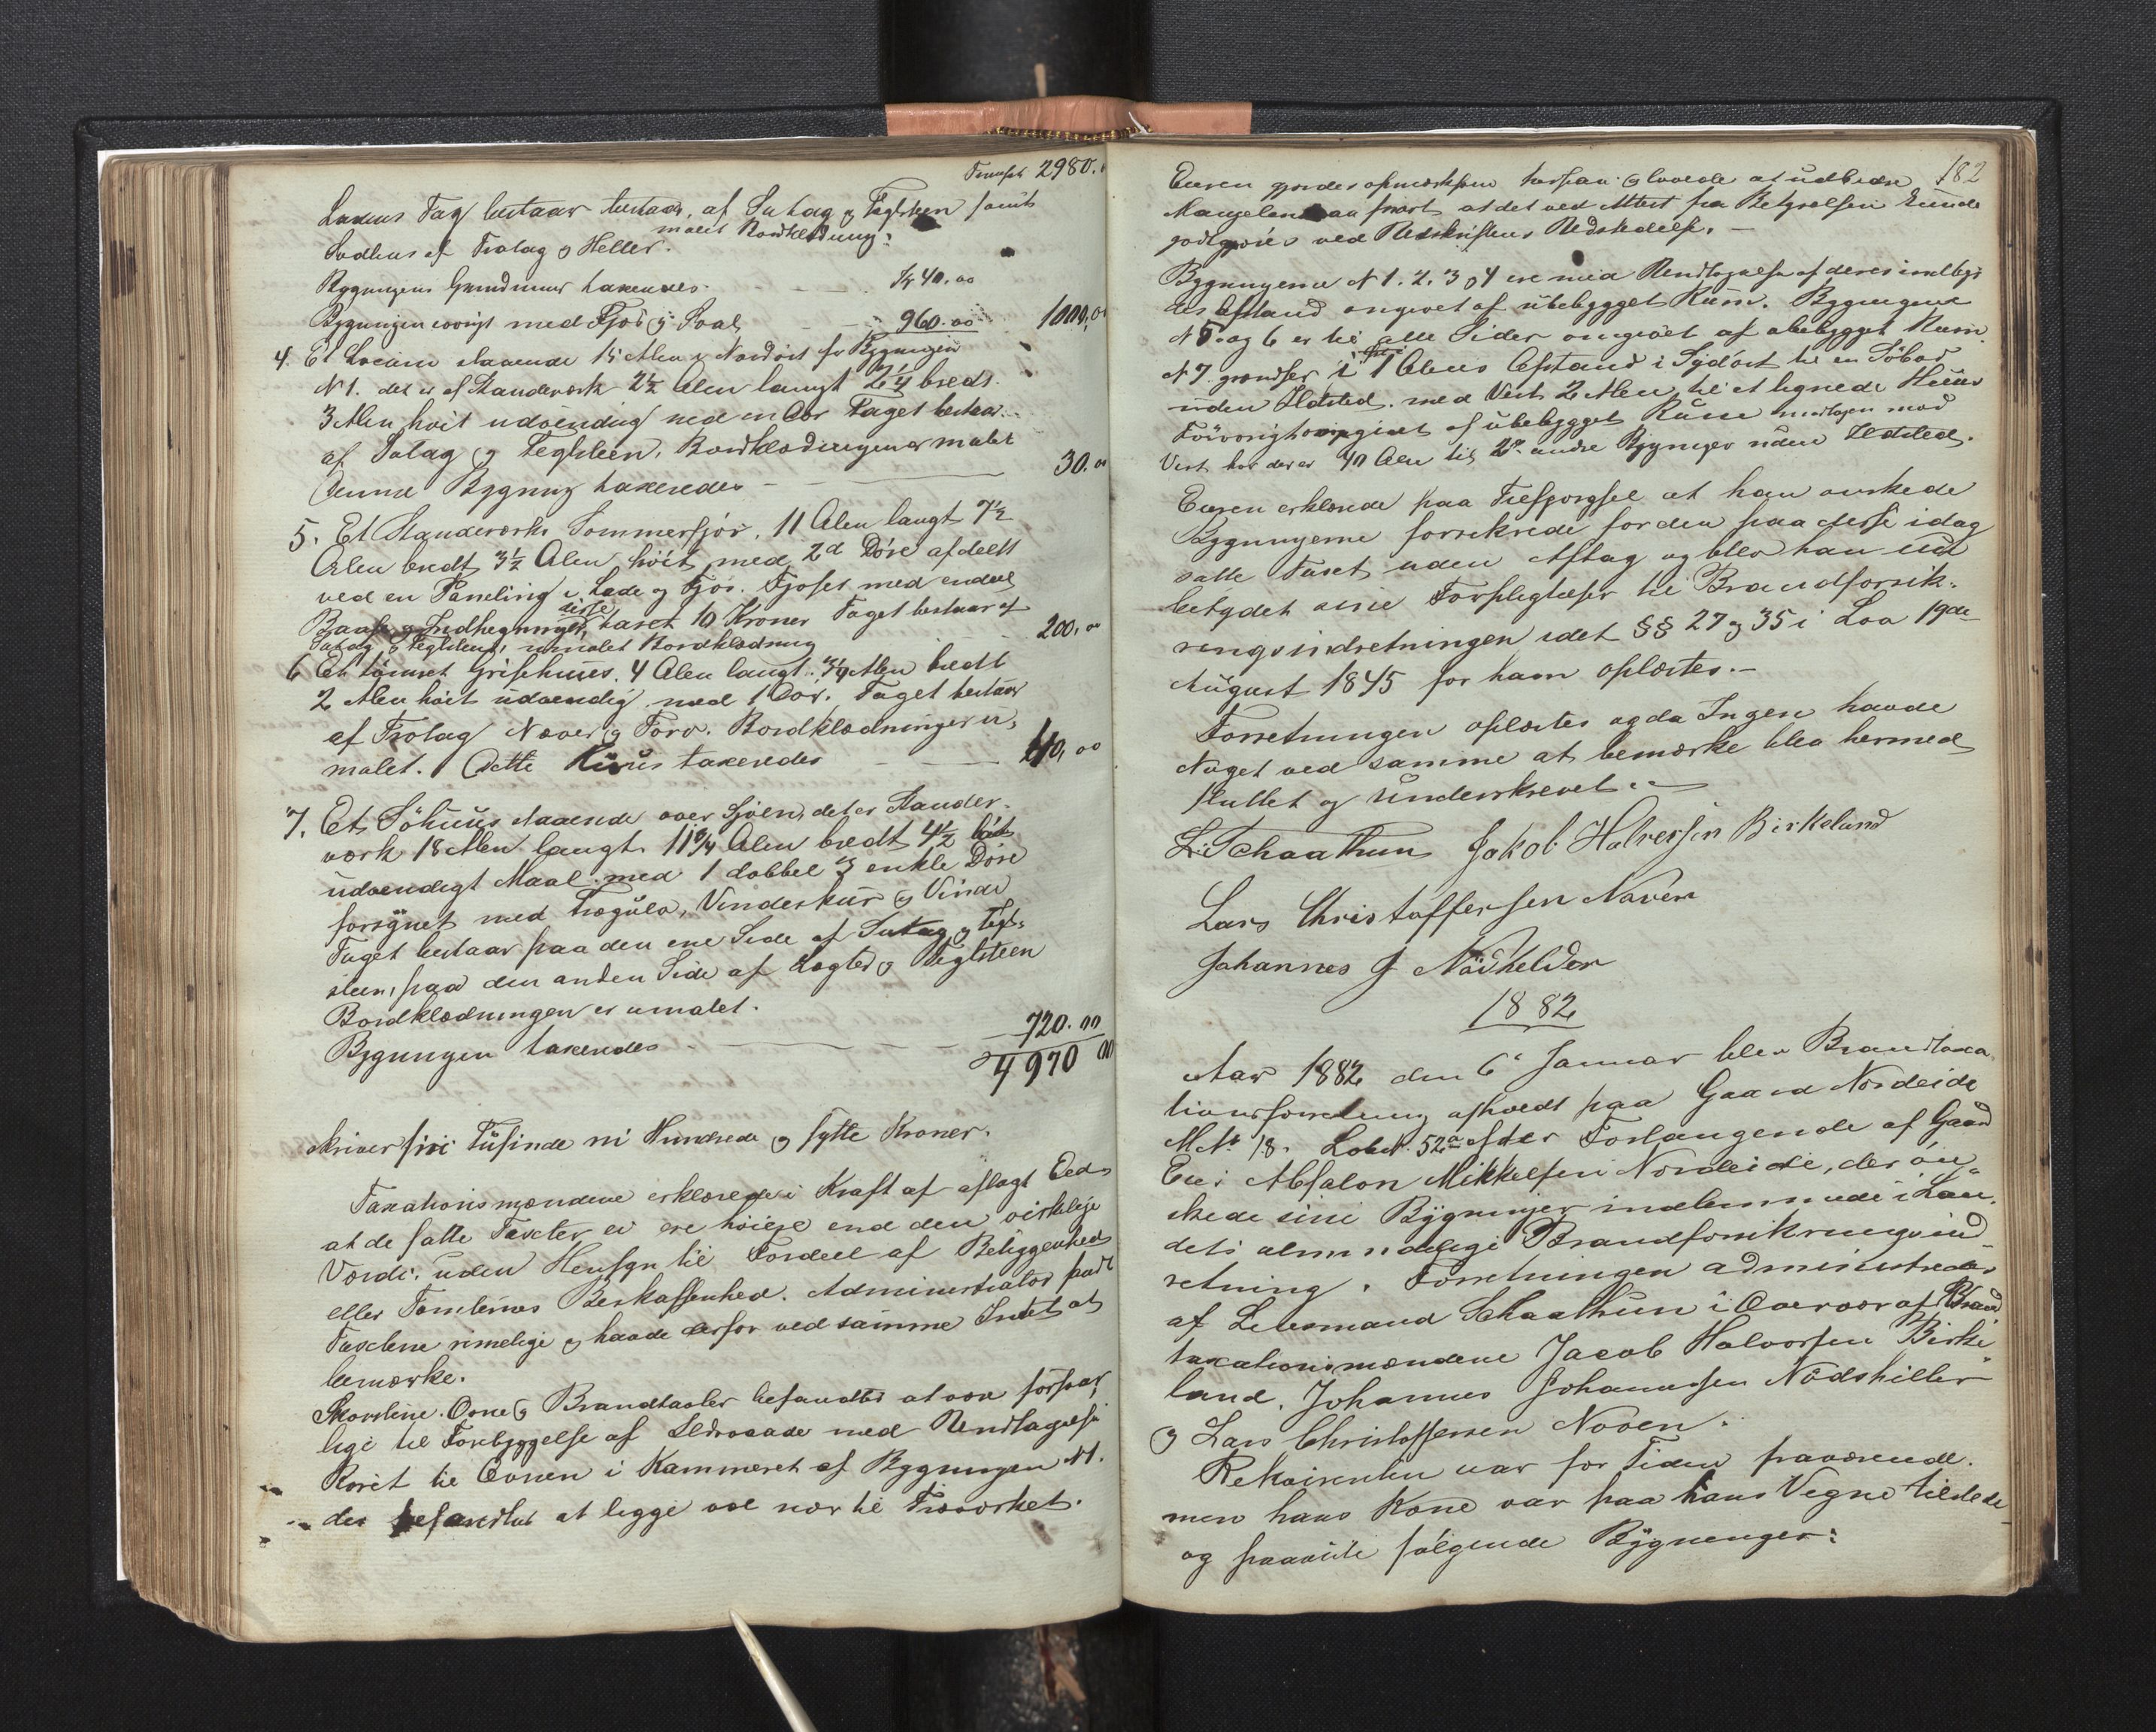 Transport 2980.
Ladens Tag bestaar bestaar, af Sutag og Teglsteen samt
malet Bordklædning.
Svalens af Trotag og Heller.
Bygningens Grundmuur taxeredes Kr 40.00
Bygningen øvrigt med Fjøs og Sval 960.00 1000,00
4. Et Locum staaende 15 Alen i Nordost for Bygningen
N 1. det er af Standværk 2½ Alen langt 2¼ bredt.
3 Alen høit udvendig med en Dør Taget bestaar
af Sutag og Teglsteen, Bordklædningen er malet
Denne Bygning taxeredes 30.00
5. Et Standværks Sommerfjøs, 11 Alen langt 7½
Alen bredt 3½ Alen høit med 2d Døre afdeelt
ved en Paneling i Lade og Fjøs. Fjøset med endeel
Baase og Indhegninger, disse taxet 10 Kroner Taget bestaar af
Sutag & Teglsteen, umalet Bordklædning 200,00
6 Et tømret Grisehuus. 4 Alen langt 3¼ Alen bredt
2 Alen høit udvendig med 1 Dør. Taget bestaar
af Trotag Næver og Torv. Bordklædningen u-
malet. Dette Huus taxeredes 40,00
7. Et Söhuus staaende over Sjøen, det er Stander-
værk 18 Alen langt 11¾ Alen bredt 4½ høit
udvendigt Maal. med 1 dobbel 3 enkle Døre
forsynet med Trægulv, Vindeskur og Vinde
Taget bestaar paa den ene Side af Sutag og Tegl-
steen, paa den anden Side af Lægter og Teglsteen
Bordklædningen er umalet.
Bygningen taxeredes 720.00
4970 00
skriver fire Tusinde ni Hundrede og sytti Kroner.
Taxationsmændene erklærede i Kraft af aflagt Eed
at de satte Taxter ei ere høiere end den virkelige
Værdi, uden Hensyn til Fordeel af Beliggenhed
eller Tomternes Beskaffenhed. Administrator fandt
Taxterne rimelige og havde derfor ved samme Intet at
bemærke.
Skorstene. Ovne og Brandtavler befandtes at være forsvar-
lige til Forebyggelse af Ildsvaade med Undtagelse
Røret til Ovnen i Kammeret af Bygningen N1.
der befandtes at ligge vel nær til Træværket.
182
Eieren gjordes opmærksom herpaa og lovede at udbedre
Mangelen saa snart at det ved Attest fra Betyrelsen kunde
godtgjøres ved Udskriftens Udstedelse.
Bygningerne N 1. 2. 3 og 4 ere med Undtagelse af deres indbyr-
des Afstand omgivet af ubebygget Rum. Bygningerne
N 5. og 6 er til alle Sider omgivet af ubebygget Rum.
N 7. grændser i 1 Alens Afstand i Sydost til en Söbod
uden Ildsted. med Vest 2 Alen til et lignede Huus
Forøvrigt omgivet af ubebygget Rum undtagen mod
Vest hvor der er 40 Alen til 2de andre Bygninger uden Ildsted.
Eieren erklærede paa Tilspørgsel at han ønskede
Bygningerne forsikrede for den paa disse idag
satte Taxt uden Aftag og blev han
betydet sine Forpligtelser til Brandforsik-
ringsindretningen idet §§ 27 og 35 i Lov 19de
August 1845 for ham oplæstes.
Forretningen oplæstes og da Ingen havde
Noget ved samme at bemærke blev hermed
sluttet og underskrevet.
L. Schaathun Jakob Halversen Birkeland
Lars Christoffersen Naven
Johannes J Nødskelder
1882
Aar 1882 den 6 Januar blev Brandtaxa-
tionsforretning afholdt paa Gaard Nordeide
M. No 18. Løbe N. 52a efter Forlangende af Gaard
Eier Absalon Mikkelsen Nordeide, der øn-
skede sine Bygninger indlemmede i Lan-
dets almindelige Brandforsikringsind-
retning. Forretningen administredes
af Lensmand Schaathun i Overvær af Brand
taxationsmændene Jacob Halvorsen Birke-
land, Johannes Johannesen Nödskiller
og Lars Christoffersen Noven.
Rekvirenten var for Tiden fraværende.
men hans Kone var paa hans Vegne tilstede
og paaviste følgende Bygninger: